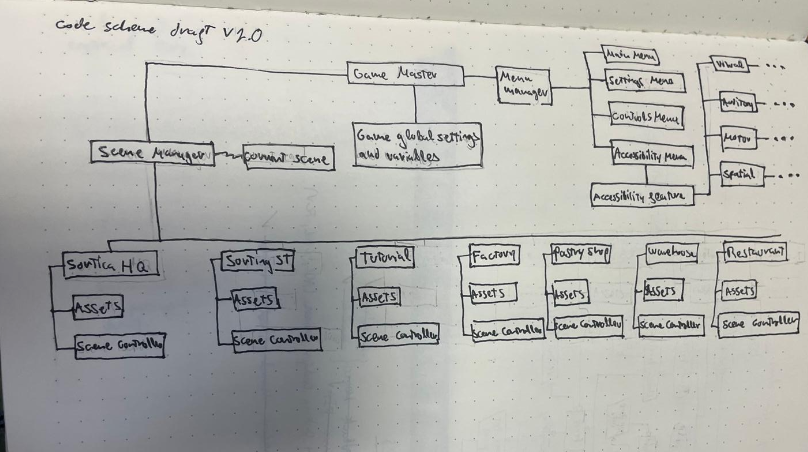 code scheme dragt V2.0
Game Master
Menu
manager
Main Menu
Settings Menu
Controls Menu
Accessibility Menu
Accessibility feature
Visual ...
Auditory ...
Motor ...
Spatial ...
Game global settings
and variables
Scene Manager
Current scene
Sortica HQ
Assets
Scene Controller
Sorting ST
Assets
Scene Controller
Tutorial
Assets
Scene Controller
Factory
Assets
Scene Controller
Pastry shop
Assets
Scene Controller
Warehouse
Assets
Scene Controller
Restaurant
Assets
Scene Controller